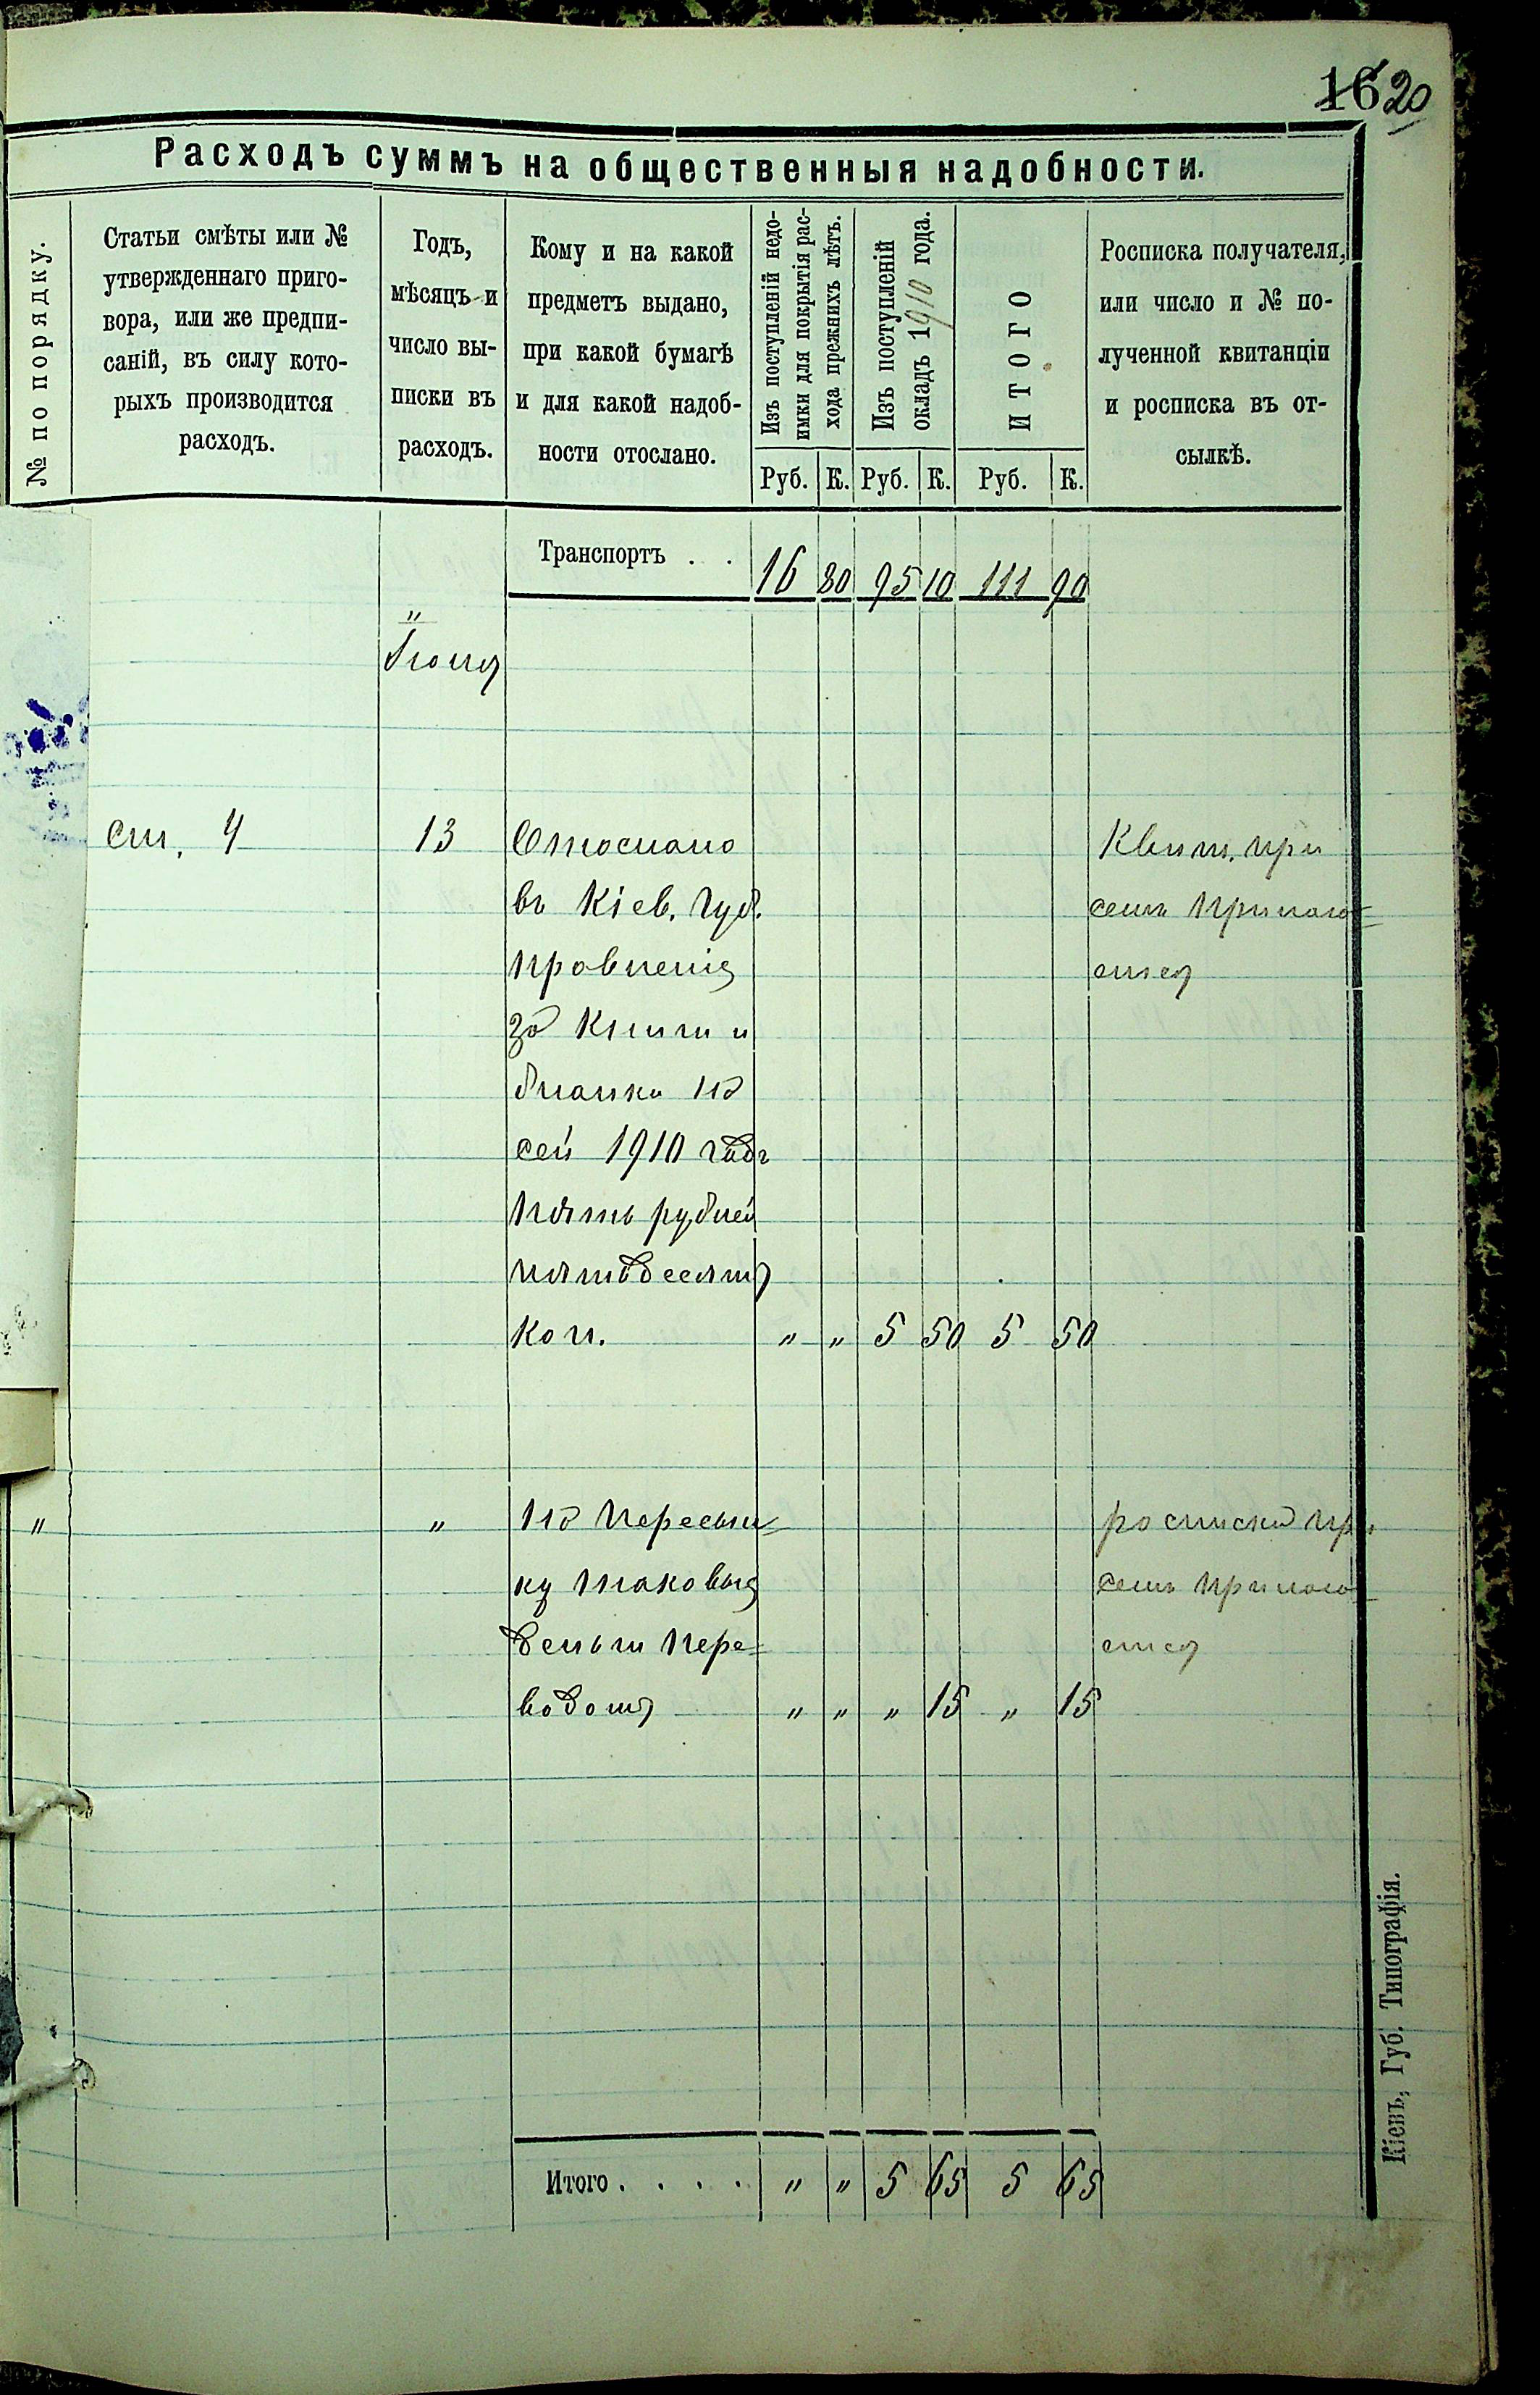 16 20
Расходъ суммъ на общественныя надобности.
№ по порядку.
Статьи смѣты или №
утвержденнаго приго-
вора, или же предпи-
саній, въ силу кото-
рыхъ производится
расходъ.
Годъ,
мѣсяцъ и
число вы-
писки въ
расходъ.
Кому и на какой
предметъ выдано,
при какой бумагѣ
и для какой надоб-
ности отослано.
Изъ поступленій недо-
имки для покрытія рас-
хода прежнихъ лѣтъ.
Изъ поступленій
окладъ 1910 года.
ИТОГО
Росписка получателя,
или число и № по-
лученной квитанціи
и росписка въ от-
сылкѣ.
Руб. К. Руб. К. Руб. К.
Транспортъ . . 16 80 95 10 111 90
"
Ст. 4 13 Отослано Квит. при
въ Кіев. Губ. семъ прилага=
Правленія ется
за книги и
бланки на
сей 1910 годъ
пять рублей
пятьдесятъ
коп. " " 5 50 5 50
" " На пересыл= росписка при
ку таковыхъ семъ прилага=
деньги пере= ется
водомъ " " " 15 " 15
Итого. . . . " " 5 65 5 65
Кіевъ, Губ. Типографія.